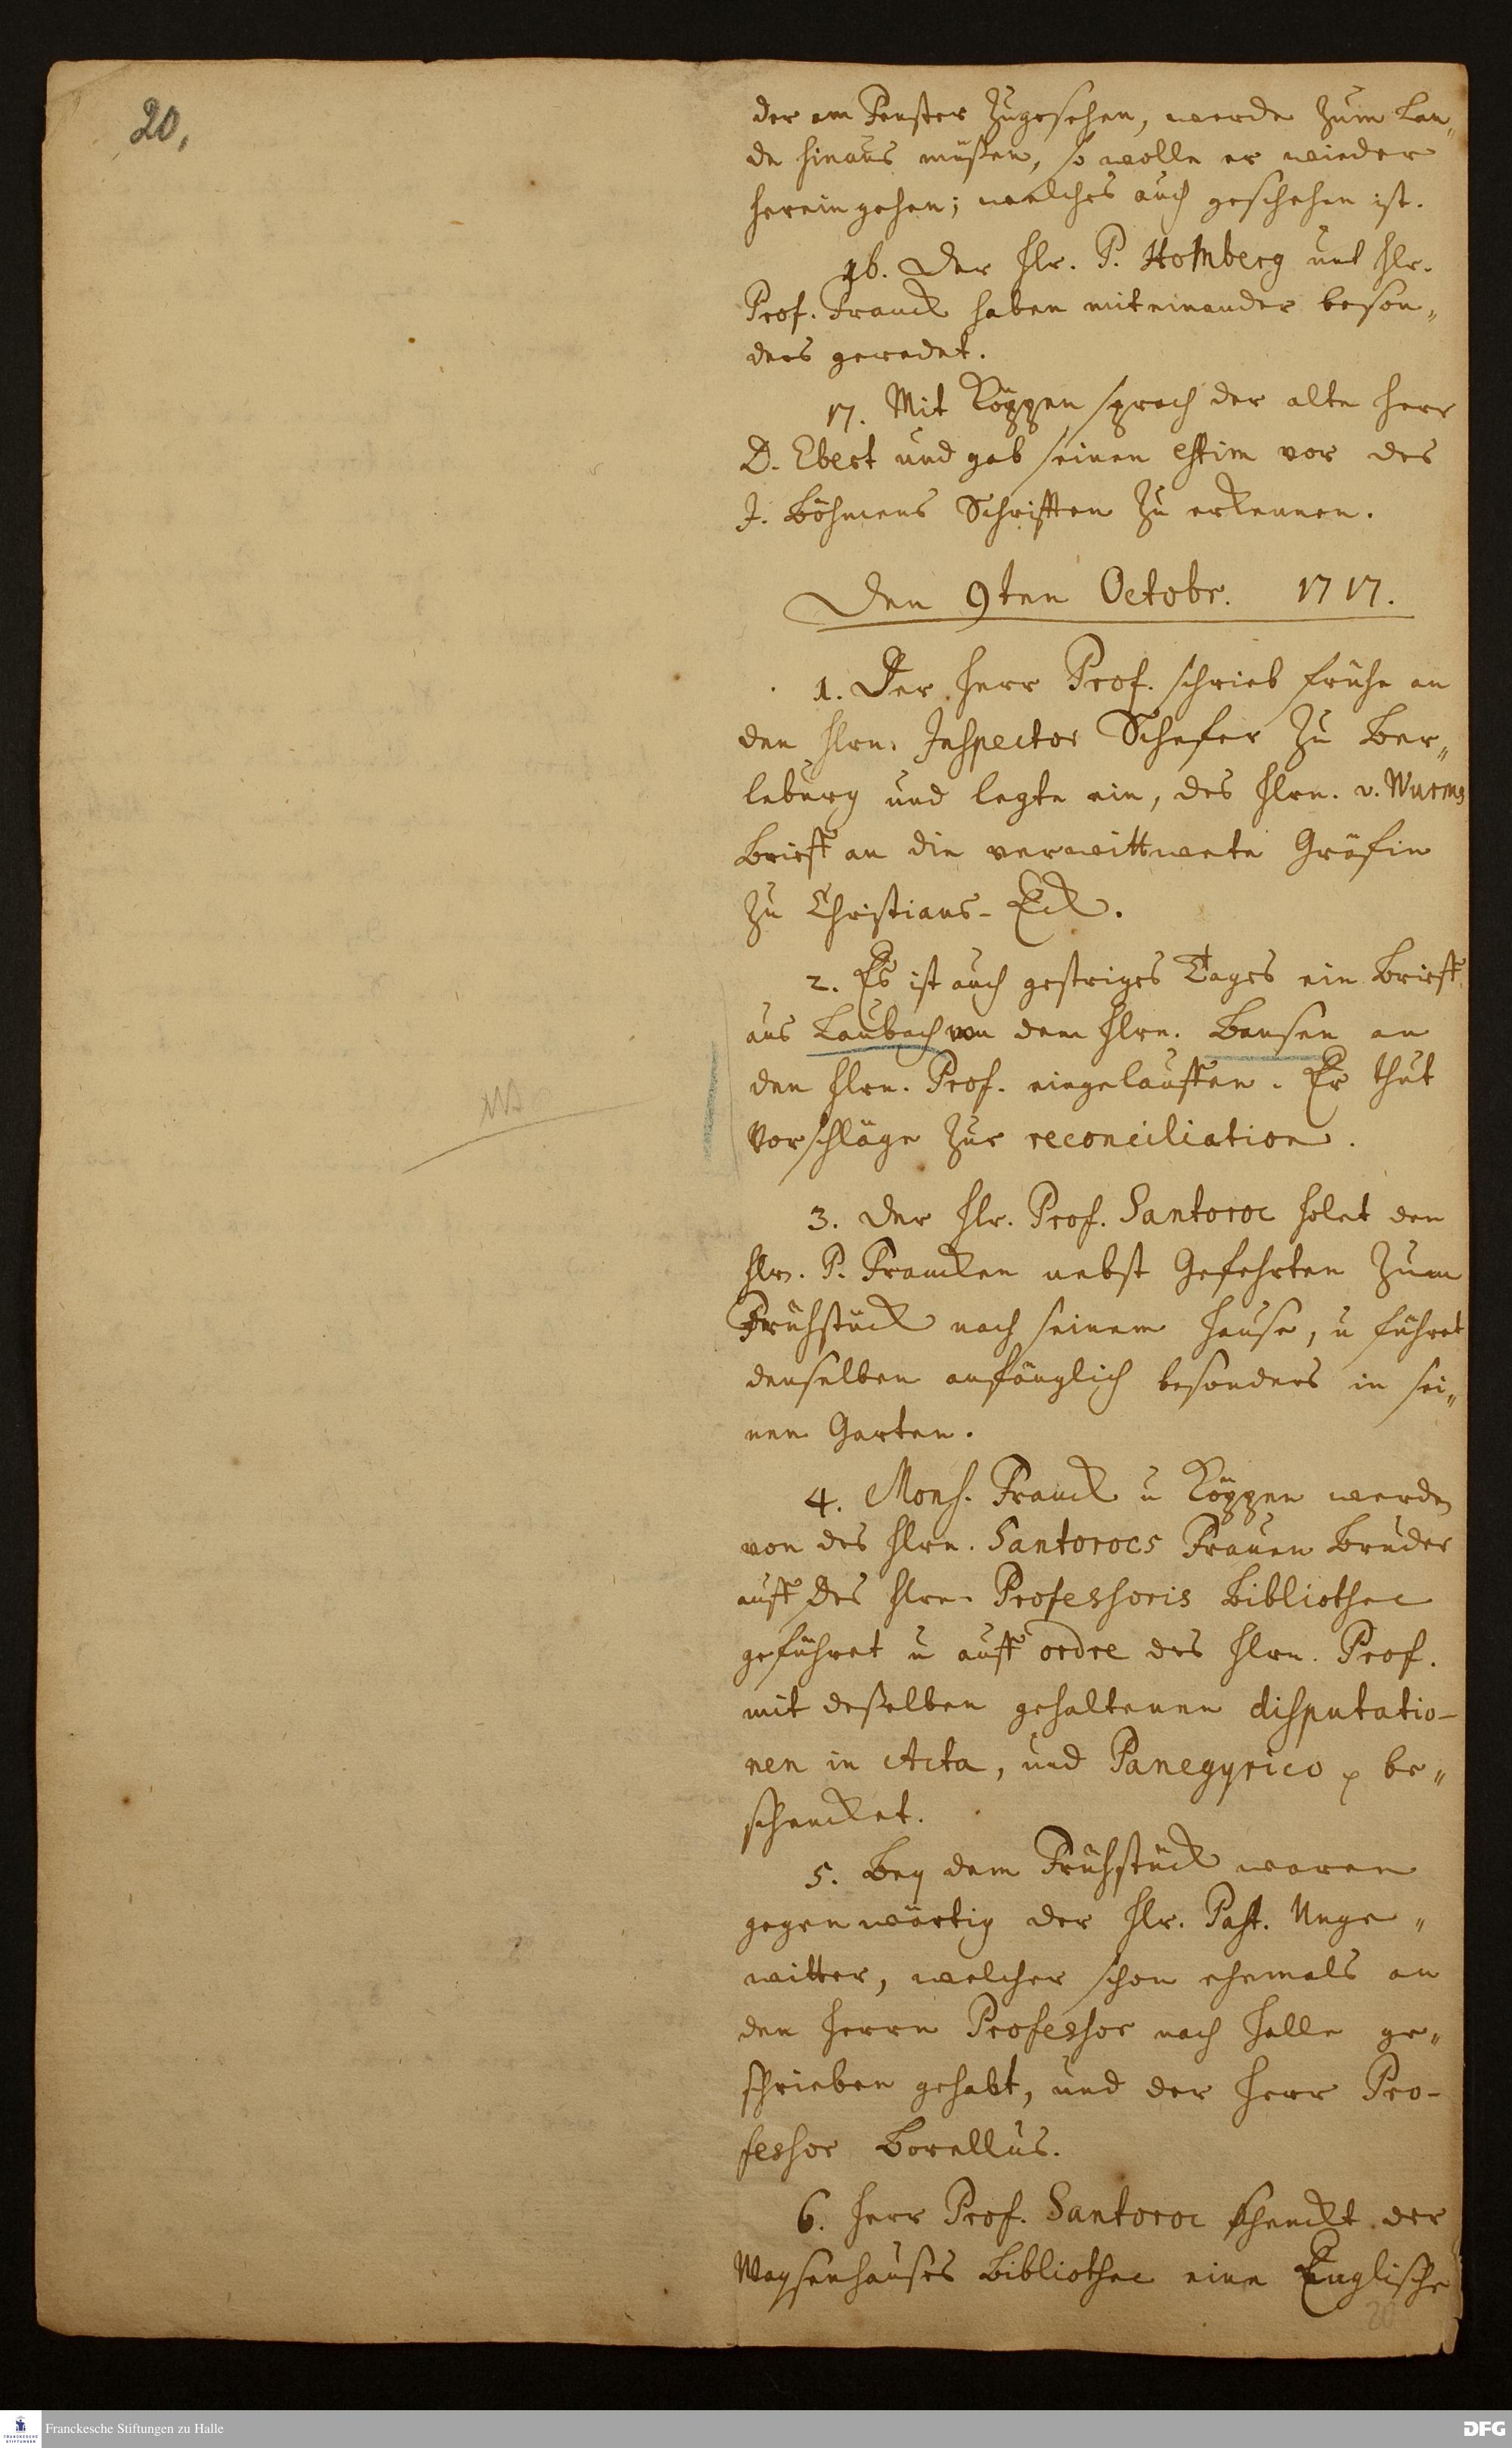 20,
der am Fenster zugesehen, werde zum Lan„
de hinaus müßen, so wolle er wieder
herein gehen; welches auch geschehen ist.
16. Der Hr. P. Homberg und Hr.
Prof. Franck haben mit einander beson„
ders geredet.
17. Mit Köppen sprach der alte Herr
D. Ebert und gab seinen estim vor des
J. Böhmens Schrifften zu erkennen.
Den 9ten Octobr. 1717.
1. Der Herr Prof. schrieb frühe an
den Hrn. Inspector Schefer zu Ber„
leburg und legte ein, des Hrn. v. Wurms
Brieff an die verwittwete Gräfin
zu Christians-Eck.
2. Es ist auch gestriges Tages ein Brieff
aus Laubach von dem Hrn. Bansen an
den Hrn. Prof. eingelauffen. Er thut
Vorschläge zur reconciliation.
3. Der Hr. Prof. Santoroc holet den
Hrn. P. Francken nebst Gefehrten zum
Frühstück nach seinem Hause, u führet
denselben anfänglich besonders in sei„
nen Garten.
4. Mons. Franck u Köppen werden
von des Hrn. Santorocs Frauen Bruder
auff des Hrn. Professoris Bibliothec
geführet u auff ordre des Hrn. Prof.
mit deßelben gehaltenen disputatio-
nen in Acta, und Panegyrico p be„
schencket.
5. Bey dem Frühstück waren
gegenwärtig der Hr. Past. Unge„
witter, welcher schon ehemals an
den Herrn Professor nach Halle ge„
schrieben gehabt, und der Herr Pro-
fessor Borellus.
6. Herr Prof. Santoroc schenckt der
Waysenhauses Bibliothec eine Englische
20
FRANCKESCHE STIFTUNGEN
Franckesche Stiftungen zu Halle
DFG